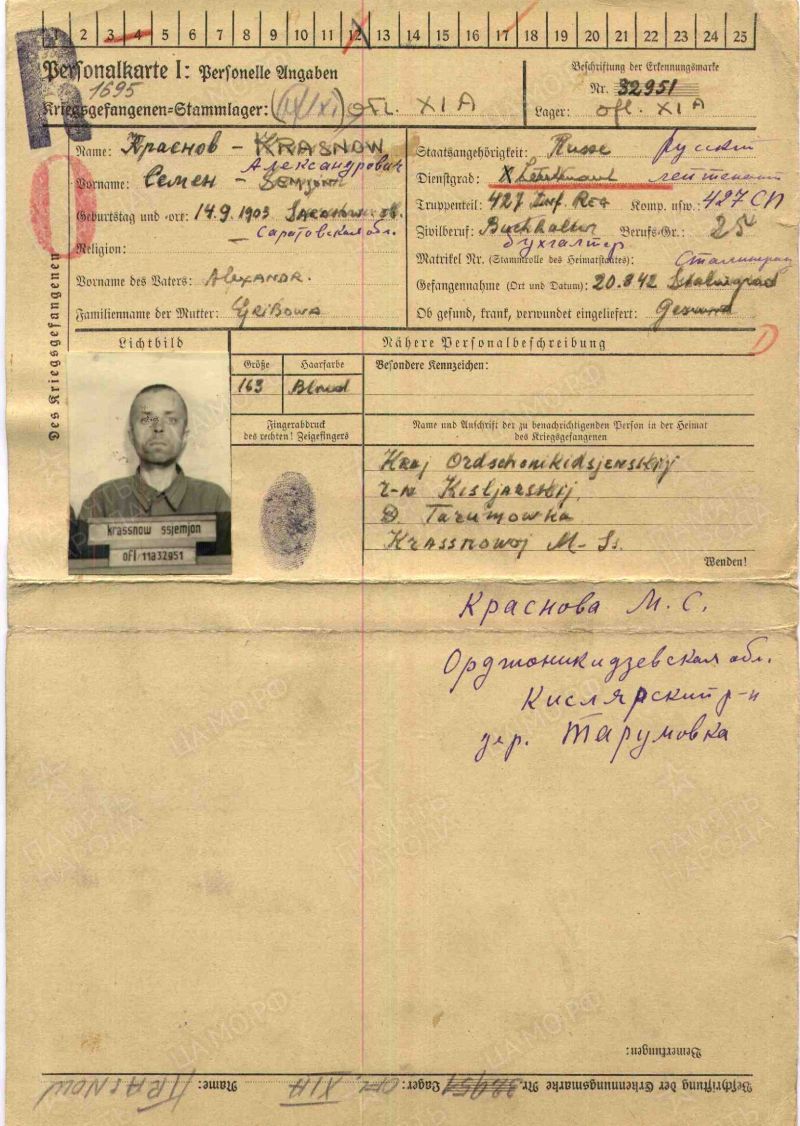 1 2 3 4 5 6 7 8 9 10 11 12 13 14 15 16 17 18 19 20 21 22 23 24 25
R
Personalkarte I: Personelle Angaben
1695
Kriegsgefangenen=Stammlager: Ofl. XI A
Beschriftung der Erkennungsmarke
Nr. 32951
Lager: Ofl. XI A
Des Kriegsgefangenen
Name: Краснов – KRASNOW
Александрович
Vorname: Семен – SEMJON
Geburtstag und -ort: 14.9.1903
Саратовская обл.
Religion:
Vorname des Vaters: Alexandr.
Familienname der Mutter: Gribowa
Staatsangehörigkeit: Russe русский
Dienstgrad: Leutnant лейтенант
Truppenteil: 427 Inf. Reg Komp. usw.: 427 СП
Zivilberuf: Buchhalter Berufs-Gr.: 25
бухгалтер
Matrikel Nr. (Stammrolle des Heimatstaates): Сталинград
Gefangennahme (Ort und Datum): 20.8 42 Stalingrad
Ob gesund, krank, verwundet eingeliefert: Gesund
Lichtbild
Nähere Personalbeschreibung
Größe Haarfarbe Besondere Kennzeichen:
163 Blond
Fingerabdruck
des rechten! Zeigefingers
Name und Anschrift der zu benachrichtigenden Person in der Heimat
des Kriegsgefangenen
krassnow ssjemjon
ofl 11a32951
Kraj Ordschonikidsjenskij
r-n Kisljarskij
D. Tarumowka
Krassnowoj M- Ss.
Wenden!
Краснова М. С.
Орджоникидзевская обл.
Кислярский р-н
дер. Тарумовка
Bemerkungen:
Name: KRASNOW
Beschriftung der Erkennungsmarke Nr. 32951 Lager: Ofl. XIA
ЦАМО.РФ
ПАМЯТЬ
НАРОДА